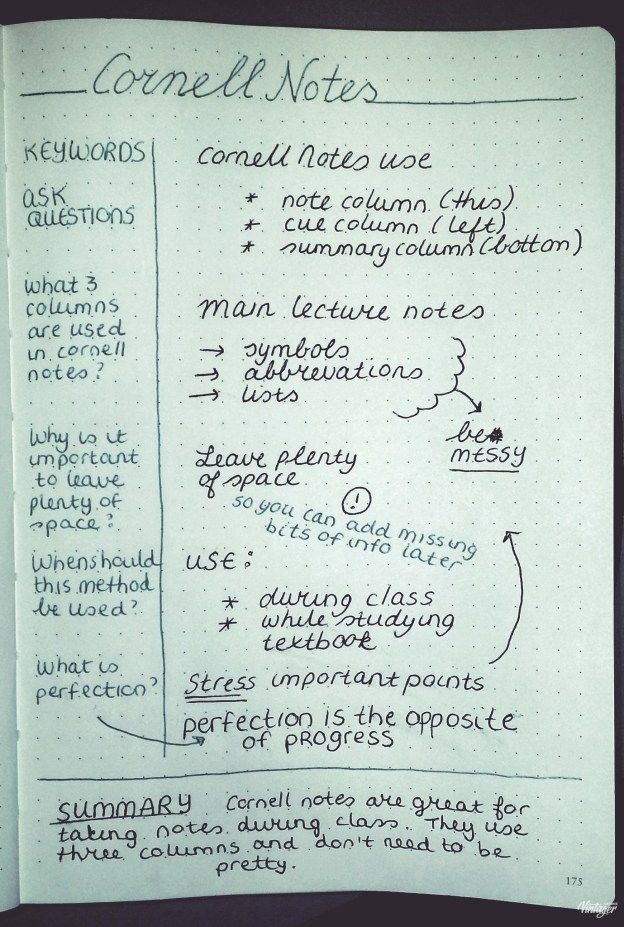 Cornell Notes
KEYWORDS
ASK
QUESTIONS
what 3
columns
are used
in cornell
notes?
Why is it
important
to leave
plenty of
space?
When should
this method
be used?
What is
perfection?
cornell notes use
* note column (this)
* cue column (left)
* summary column (bottom)
main lecture notes
→ symbols
→ abbrevations
→ lists
be
MESSY
Leave plenty
of space
!
so you can add missing
bits of info later
USE:
* during class
* while studying
textbook
Stress important points
perfection is the opposite
of PROGRESS
SUMMARY Cornell notes are great for
taking notes during class. They use
three columns and don't need to be
pretty.
175
Vintager